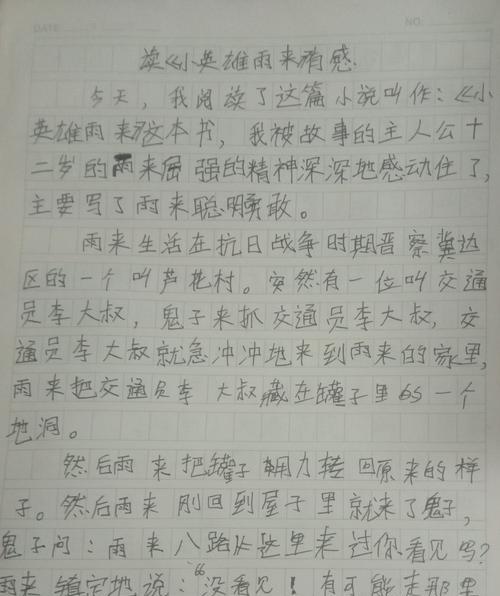 DATE
NO:
读《小英雄雨来有感
今天，我阅读了这篇小说叫作：《小
英雄雨来》这本书，我被故事的主人公十
二岁的雨来倔强的精神深深地感动住了，
主要写了雨来聪明勇敢。
雨来生活在抗日战争时期晋察冀边
区的一个叫芦花村。突然有一位叫交通
员李大叔，鬼子来抓交通员李大叔，交
通员李大叔就急冲冲地来到雨来的家里，
雨来把交通员李大叔藏在罐子里的一个
地洞。
然后雨来把罐子用力转回原来的样
子。然后雨来刚回到屋子里就来了鬼子，
鬼子问：雨来八路从这里来过你看见吗？
雨来镇定地说：“没看见！有可能走那里